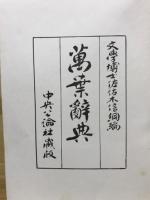 文學博士佐佐木信綱編
萬葉辭典
中央公論社藏版